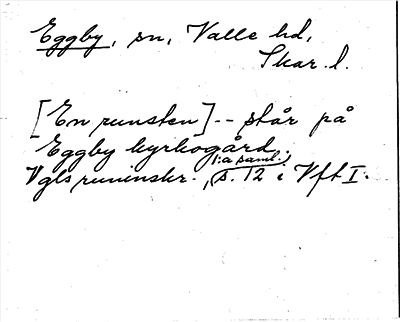 Eggby, sn, Valle hd,
Skar. l.
[En runsten] -- står på
Eggby kyrkogård.
Vgls runinskr., 1:a saml., s. 12 i Vft I.